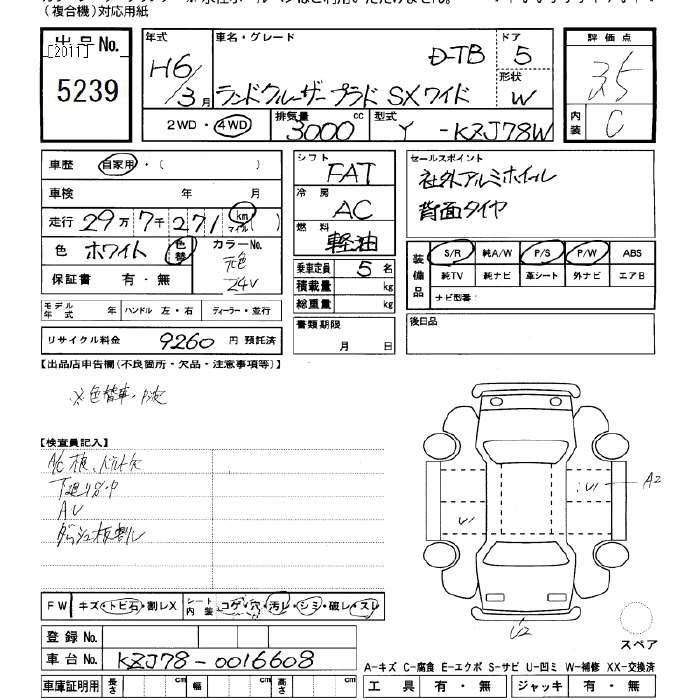 (複合機)対応用紙
出品No.
[2011]
5239
年式
H6/3月
車名・グレード
D-TB
ランドクルーザープラド SXワイド
ドア
5
形状
W
2WD・4WD
排気量
3000cc
型式
Y-KZJ78W
評価点
3.5
内装
C
車歴
自家用・( )
車検 年 月
走行 29万7千271 km マイル( )
色 ホワイト
色替
カラーNo.
元色
24V
保証書 有・無
モデル年式 年 ハンドル 左・右 ディーラー・並行
リサイクル料金 9260円 預託済
シフト
FAT
冷房
AC
燃料
軽油
乗車定員 5名
積載量 kg
総重量 kg
書類期限
月 日
セールスポイント
社外アルミホイール
背面タイヤ
装備品
S/R 純A/W P/S P/W ABS
純TV 純ナビ 革シート 外ナビ エアB
ナビ型番:
後日品
【出品店申告欄(不良箇所・欠品・注意事項等)】
※色替車
【検査員記入】
AU
FW キズ・トビ石・割レX
シート内装 コゲ・穴・汚レ・シミ・破レ・スレ
登録No.
車台No. KZJ78-0016608
車庫証明用 長さ cm 幅 cm 高さ cm
U1
U1
A2
U2
スペア
A-キズ C-腐食 E-エクボ S-サビ U-凹ミ W-補修 XX-交換済
工具 有・無 ジャッキ 有・無